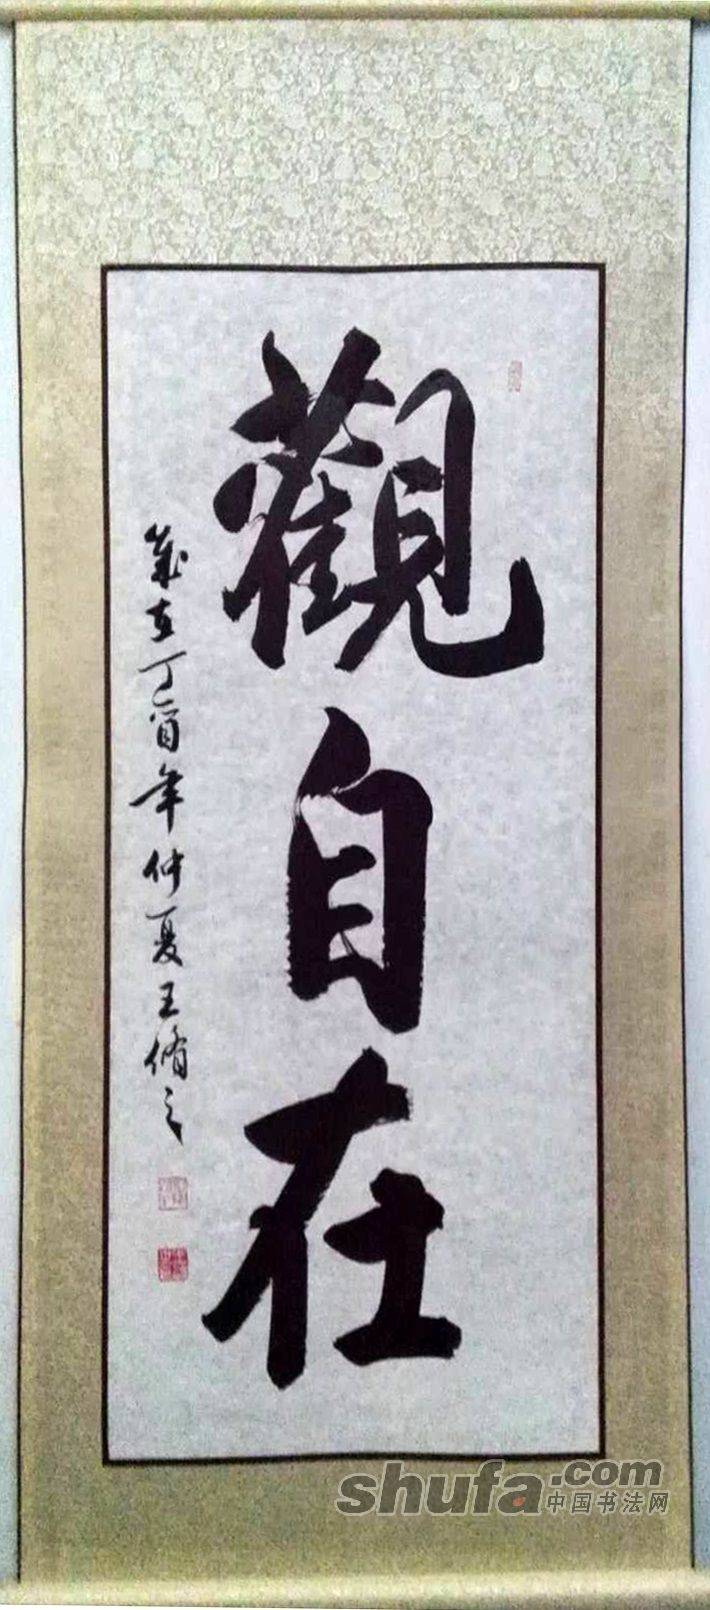 觀自在
歲在丁酉年仲夏王脩之
shufa.com
中国书法网